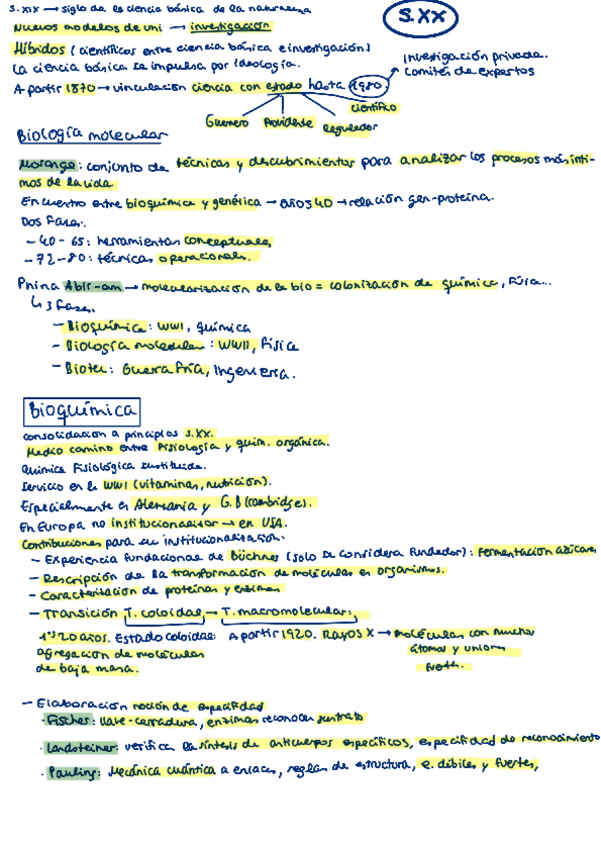 S. XIX → siglo de la ciencia básica de la naturaleza
S.XX
Nuevos modelos de uni → investigación
Híbridos (científicos entre ciencia básica e investigación)
La ciencia básica se impulsa por ideología.
Investigación privada.
Comités de expertos
A partir 1870 → vinculación ciencia con estado hasta 1980
Guerrero Providente Regulador científico
Biología molecular
Morange: conjunto de técnicas y descubrimientos para analizar los procesos más ínti-
mos de la vida
Encuentro entre bioquímica y genética → años 40 → relación gen-proteína.
Dos fases.
- 40-65: herramientas conceptuales
- 72-80: técnicas operacionales.
Pnina Abir-am → molecularización de la bio = colonización de química, física...
↳ 3 fases.
- Bioquímica: WWI, química
- Biología molecular: WWII, física
- Biotec: Guerra fría, Ingeniería.
Bioquímica
consolidación a principios s.XX.
Medio camino entre fisiología y quím. orgánica.
Química Fisiológica sustituida.
Servicio en la WWI (vitaminas, nutrición).
Especialmente en Alemania y G.B (Cambridge).
En Europa no → en USA.
Contribuciones para su institucionalización.
- Experiencia fundacional de Büchner (solo se considera fundador): fermentación azúcares
- Descripción de la transformación de moléculas en organismos.
- Caracterización de proteínas y enzimas
- Transición T. coloidal → T. macromolecular:
1ºs 20 años. Estado coloidal: A partir 1920. Rayos X → moléculas con muchos
agregación de moléculas átomos y uniones
de baja masa.
- Elaboración noción de especifidad
· Fischer: llave-cerradura, enzimas reconocen sustrato
· Landsteiner: verifica la síntesis de anticuerpos específicos, especifidad de reconocimiento
· Pauling: Mecánica cuántica a enlaces, reglas de estructura, e. débiles y fuertes,